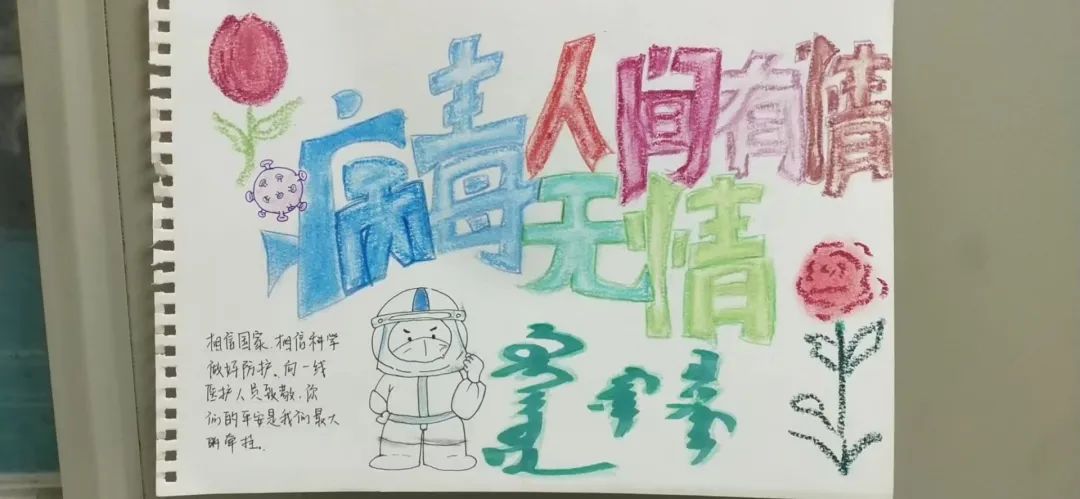 病毒无情
人间有情
相信国家.相信科学
做好防护、向一线
医护人员致敬.你
们的平安是我们最大
的牵挂.